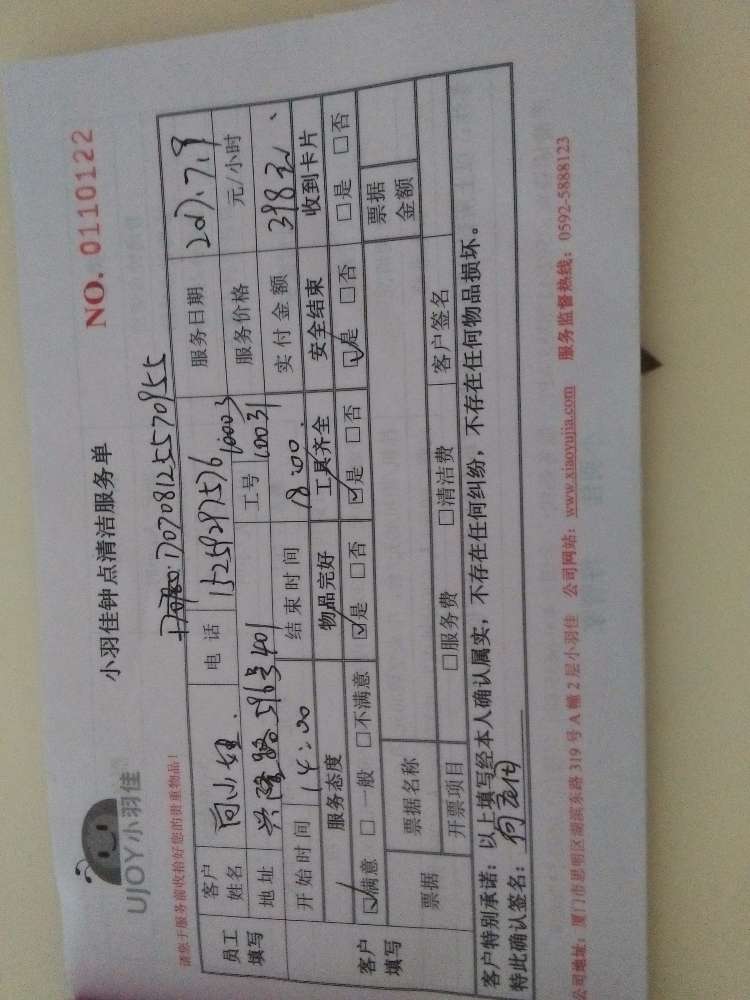 UJOY小羽佳
小羽佳钟点清洁服务单
NO. 0110122
请您于服务前收拾好您的贵重物品!
170708125570955
员工填写 客户姓名 向小姐 电话 15259297576 服务日期 2017.7.9
地址 兴隆路596号401 工号 10003 10031 服务价格 元/小时
开始时间 14:00 结束时间 18:00 实付金额 398元
客户填写 服务态度 物品完好 工具齐全 安全结束 收到卡片
☑满意 □一般 □不满意 ☑是 □否 ☑是 □否 ☑是 □否 □是 □否
票据 票据名称 票据金额
开票项目 □服务费 □清洁费 客户签名
客户特别承诺:以上填写经本人确认属实,不存在任何纠纷,不存在任何物品损坏。
特此确认签名:
公司地址:厦门市思明区湖滨东路319号A幢2层小羽佳 公司网站:www.xiaoyujia.com 服务监督热线:0592-5888123